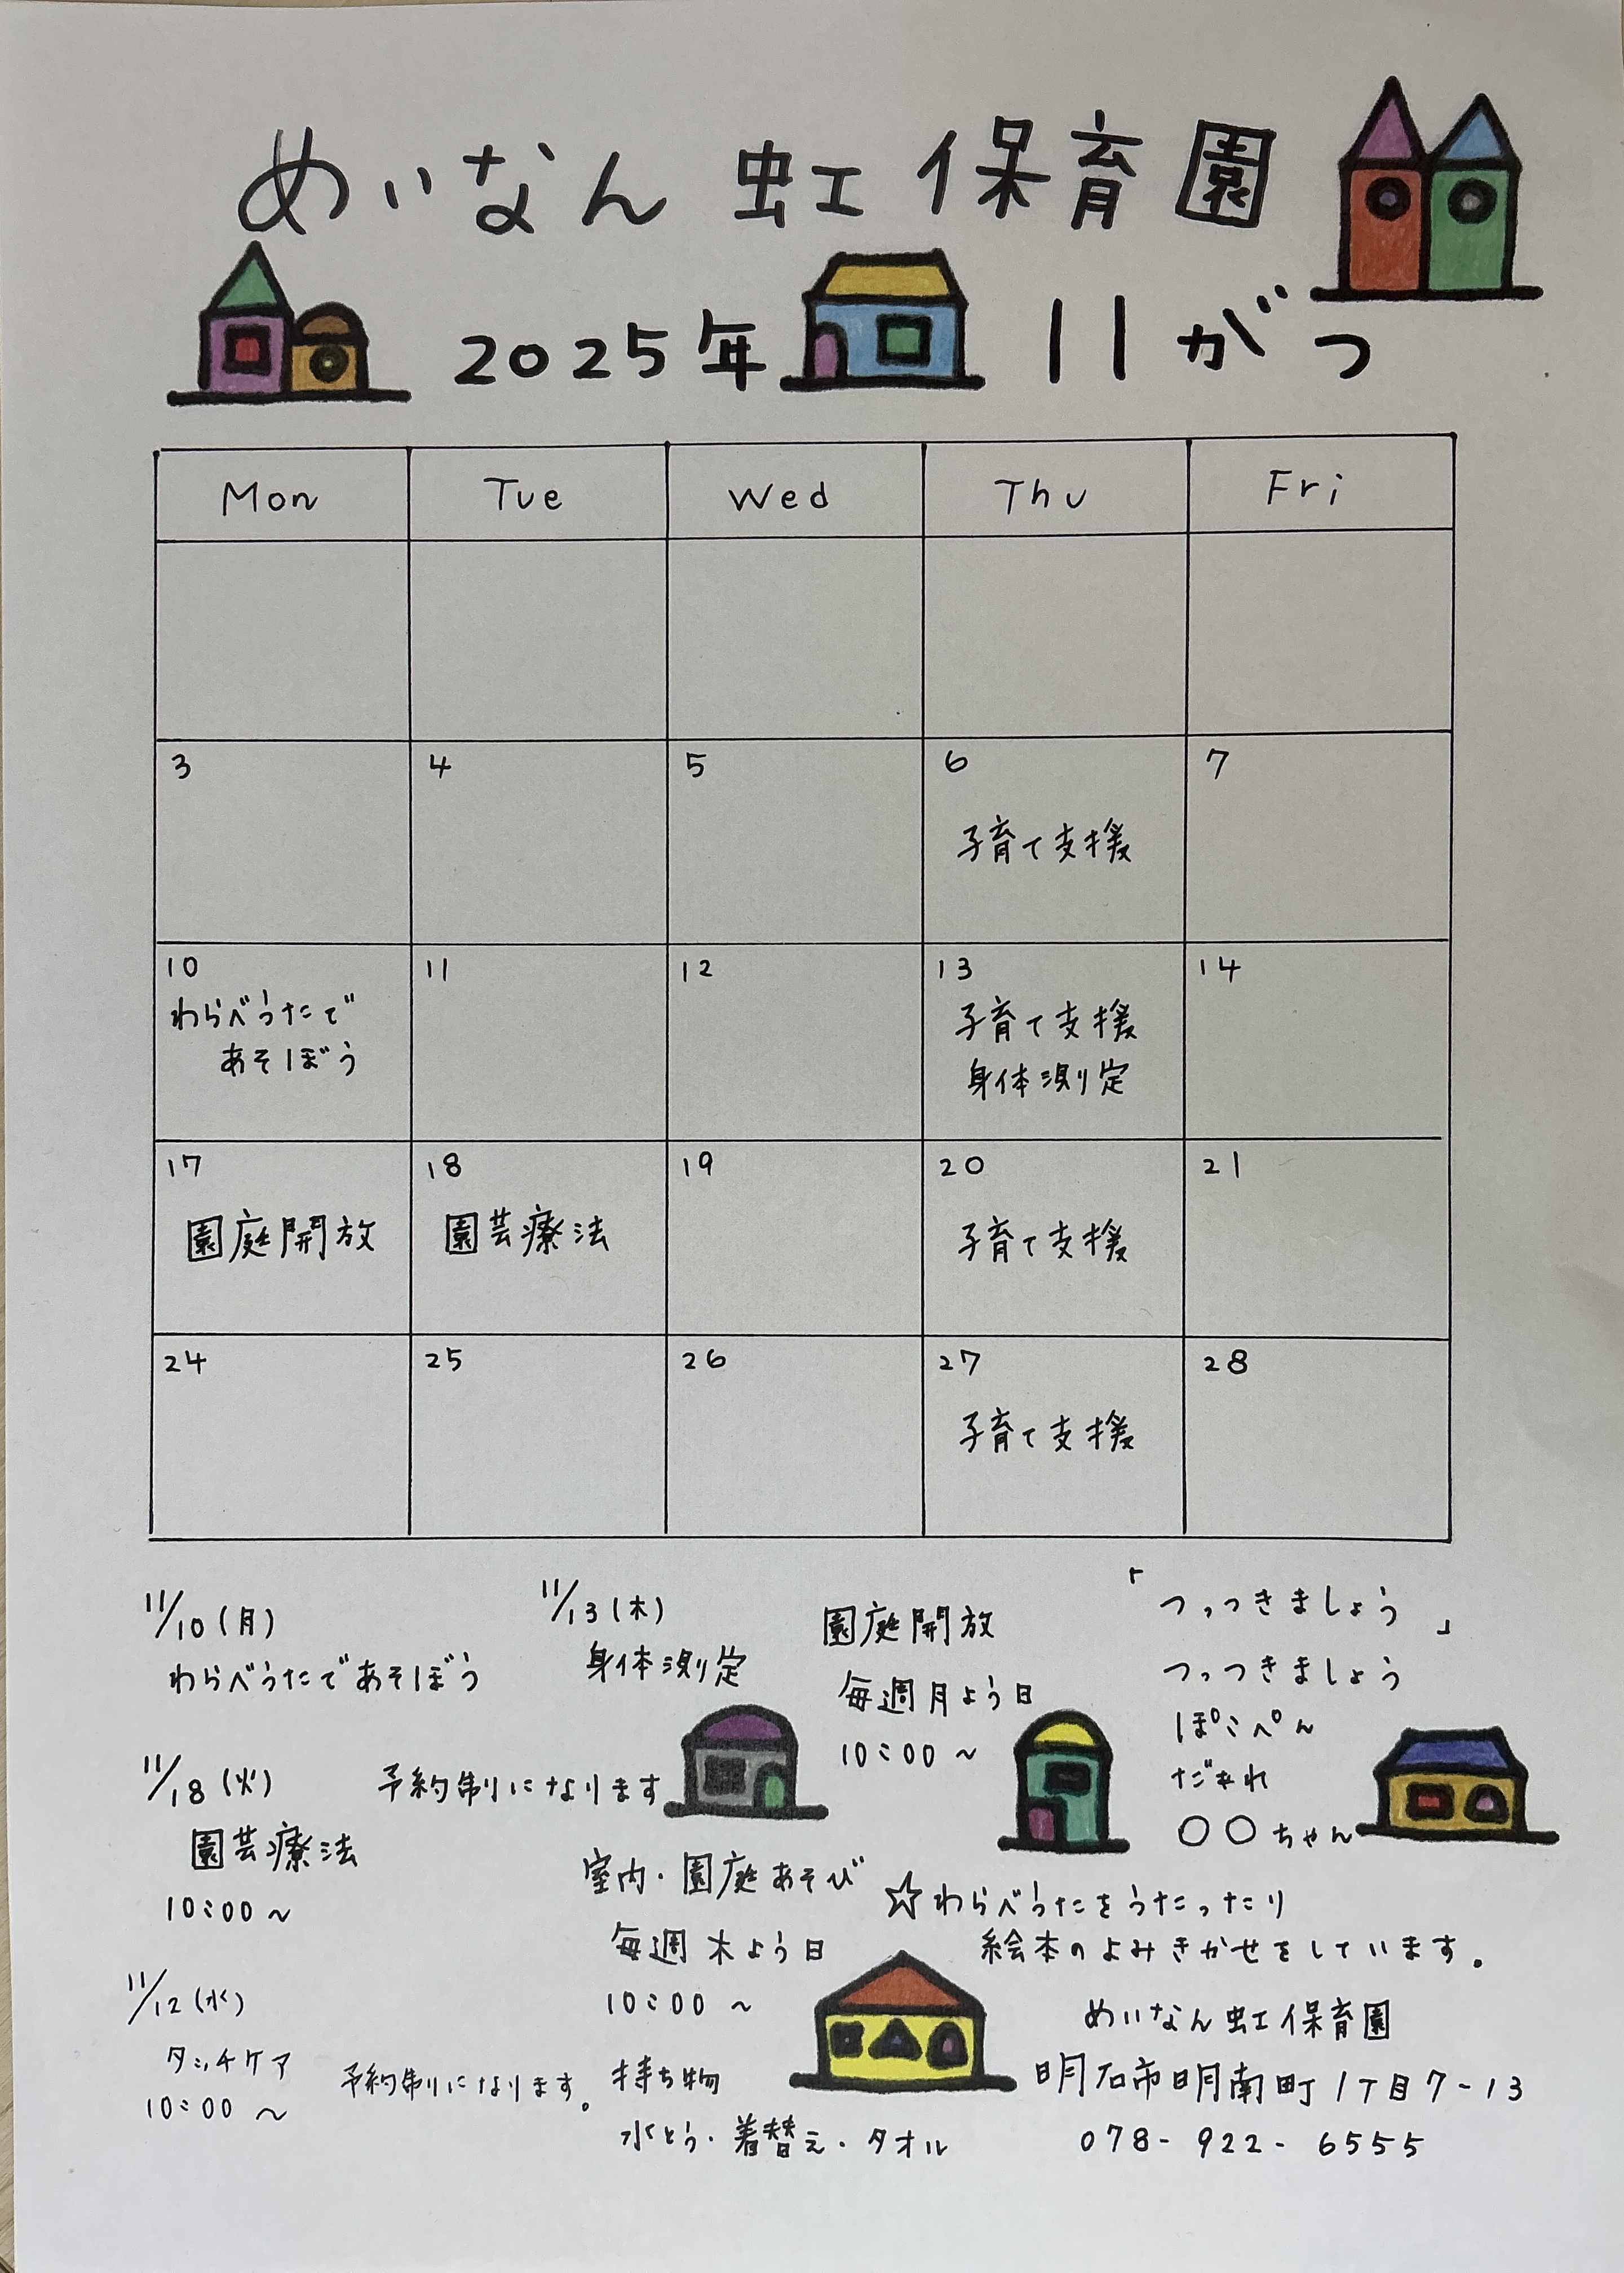 めいなん虹保育園
2025年 11がつ
Mon Tue Wed Thu Fri
3 4 5 6 7
子育て支援
10 11 12 13 14
わらべうたで
あそぼう
子育て支援
身体測定
17 18 19 20 21
園庭開放 園芸療法 子育て支援
24 25 26 27 28
子育て支援
11/10(月)
わらべうたであそぼう
11/13(木)
身体測定
園庭開放
毎週月よう日
10:00〜
「つっつきましょう」
つっつきましょう
ぽこぺん
だぁれ
○○ちゃん
11/18(火)
園芸療法
10:00〜
予約制になります
室内・園庭あそび
毎週木よう日
10:00〜
☆わらべうたをうたったり
絵本のよみきかせをしています。
11/12(水)
タッチケア
10:00〜
予約制になります。
持ち物
水とう・着替え・タオル
めいなん虹保育園
明石市明南町1丁目7-13
078-922-6555